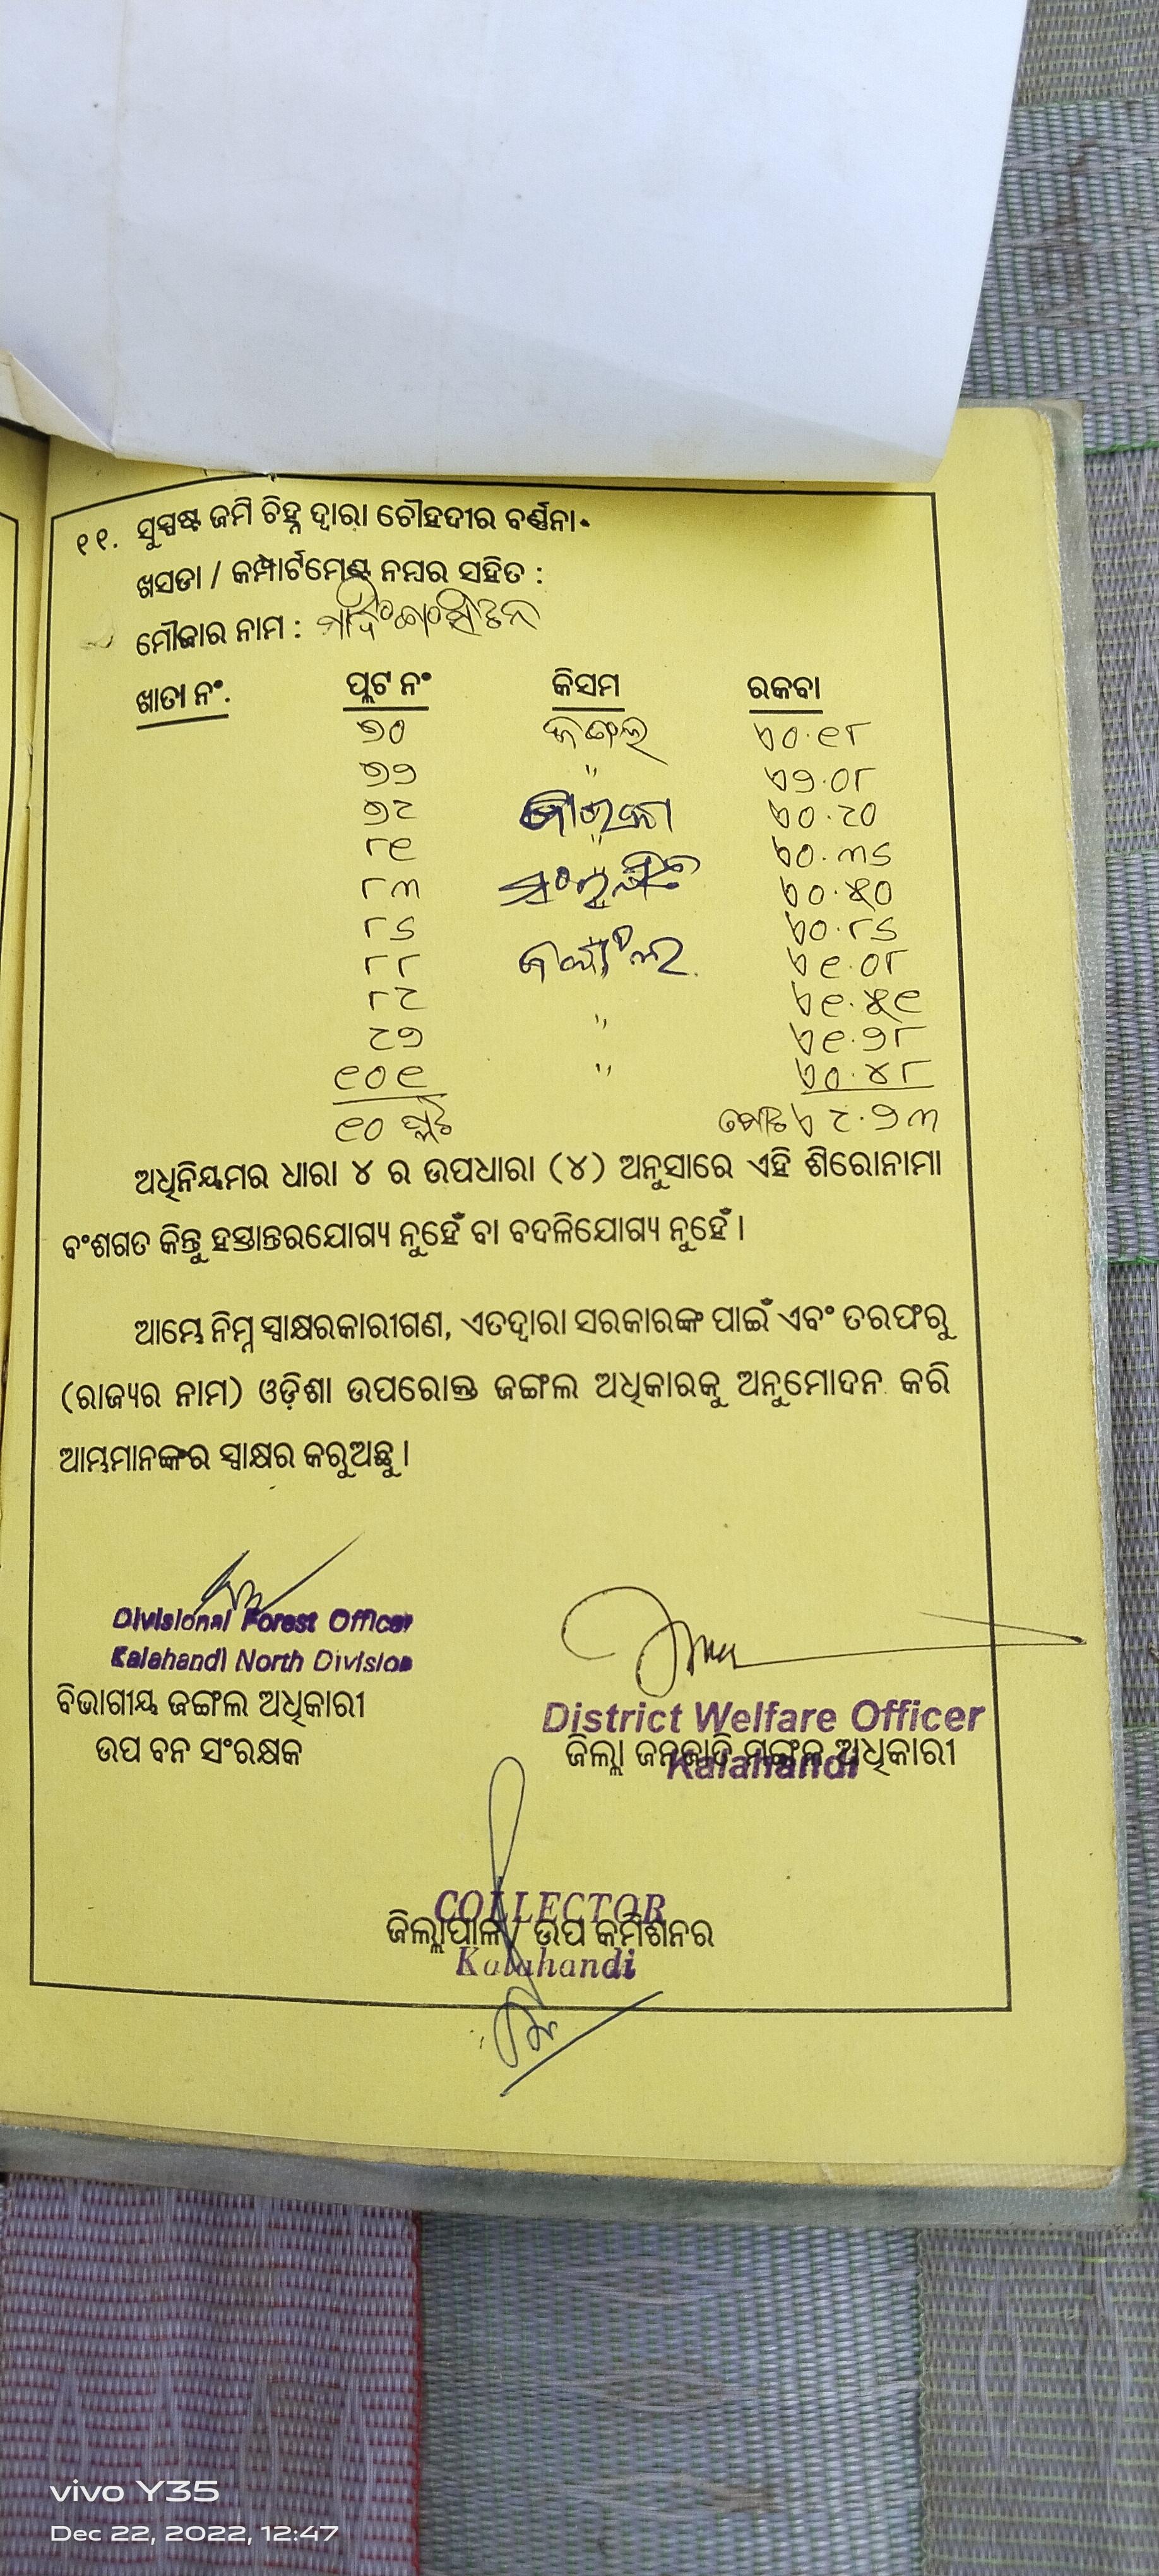 ୧୧. ସୁସ୍ପଷ୍ଟ ଜମି ଚିହ୍ନ ଦ୍ୱାରା ଚୌହଦୀର ବର୍ଣ୍ଣନା.
ଖସଡା / କମ୍ପାର୍ଟମେଣ୍ଟ ନମ୍ବର ସହିତ :
ମୌଜାର ନାମ :
ଖାତା ନଂ. ପ୍ଲଟ ନଂ କିସମ ରକବା
୭୦ ଜଙ୍ଗଲ ୦.୧୮
୭୨ " ୨.୦୮
୭୯ ୦.୯୦
୮୧ " ୦.୩୬
୮୩ ୦.୫୦
୮୬ ୦.୮୬
୮୮ ୧.୦୮
୮୯ " ୧.୫୧
୯୭ " ୧.୨୮
୧୦୧ " ୦.୪୮
୧୦ ପ୍ଲଟ ମୋଟ ୯.୨୩
ଅଧିନିୟମର ଧାରା ୪ ର ଉପଧାରା (୪) ଅନୁସାରେ ଏହି ଶିରୋନାମା
ବଂଶଗତ କିନ୍ତୁ ହସ୍ତାନ୍ତରଯୋଗ୍ୟ ନୁହେଁ ବା ବଦଳିଯୋଗ୍ୟ ନୁହେଁ ।
ଆମ୍ଭେ ନିମ୍ନ ସ୍ୱାକ୍ଷରକାରୀଗଣ, ଏତଦ୍ୱାରା ସରକାରଙ୍କ ପାଇଁ ଏବଂ ତରଫରୁ
(ରାଜ୍ୟର ନାମ) ଓଡ଼ିଶା ଉପରୋକ୍ତ ଜଙ୍ଗଲ ଅଧିକାରକୁ ଅନୁମୋଦନ କରି
ଆମ୍ଭମାନଙ୍କର ସ୍ୱାକ୍ଷର କରୁଅଛୁ ।
Divisional Forest Officer
Kalahandi North Division
ବିଭାଗୀୟ ଜଙ୍ଗଲ ଅଧିକାରୀ
ଉପ ବନ ସଂରକ୍ଷକ
District Welfare Officer
ଜିଲ୍ଲା ଜନଜାତି ମଙ୍ଗଳ ଅଧିକାରୀ
Kalahandi
COLLECTOR
ଜିଲ୍ଲାପାଳ / ଉପ କମିଶନର
Kalahandi
vivo Y35
Dec 22, 2022, 12:47